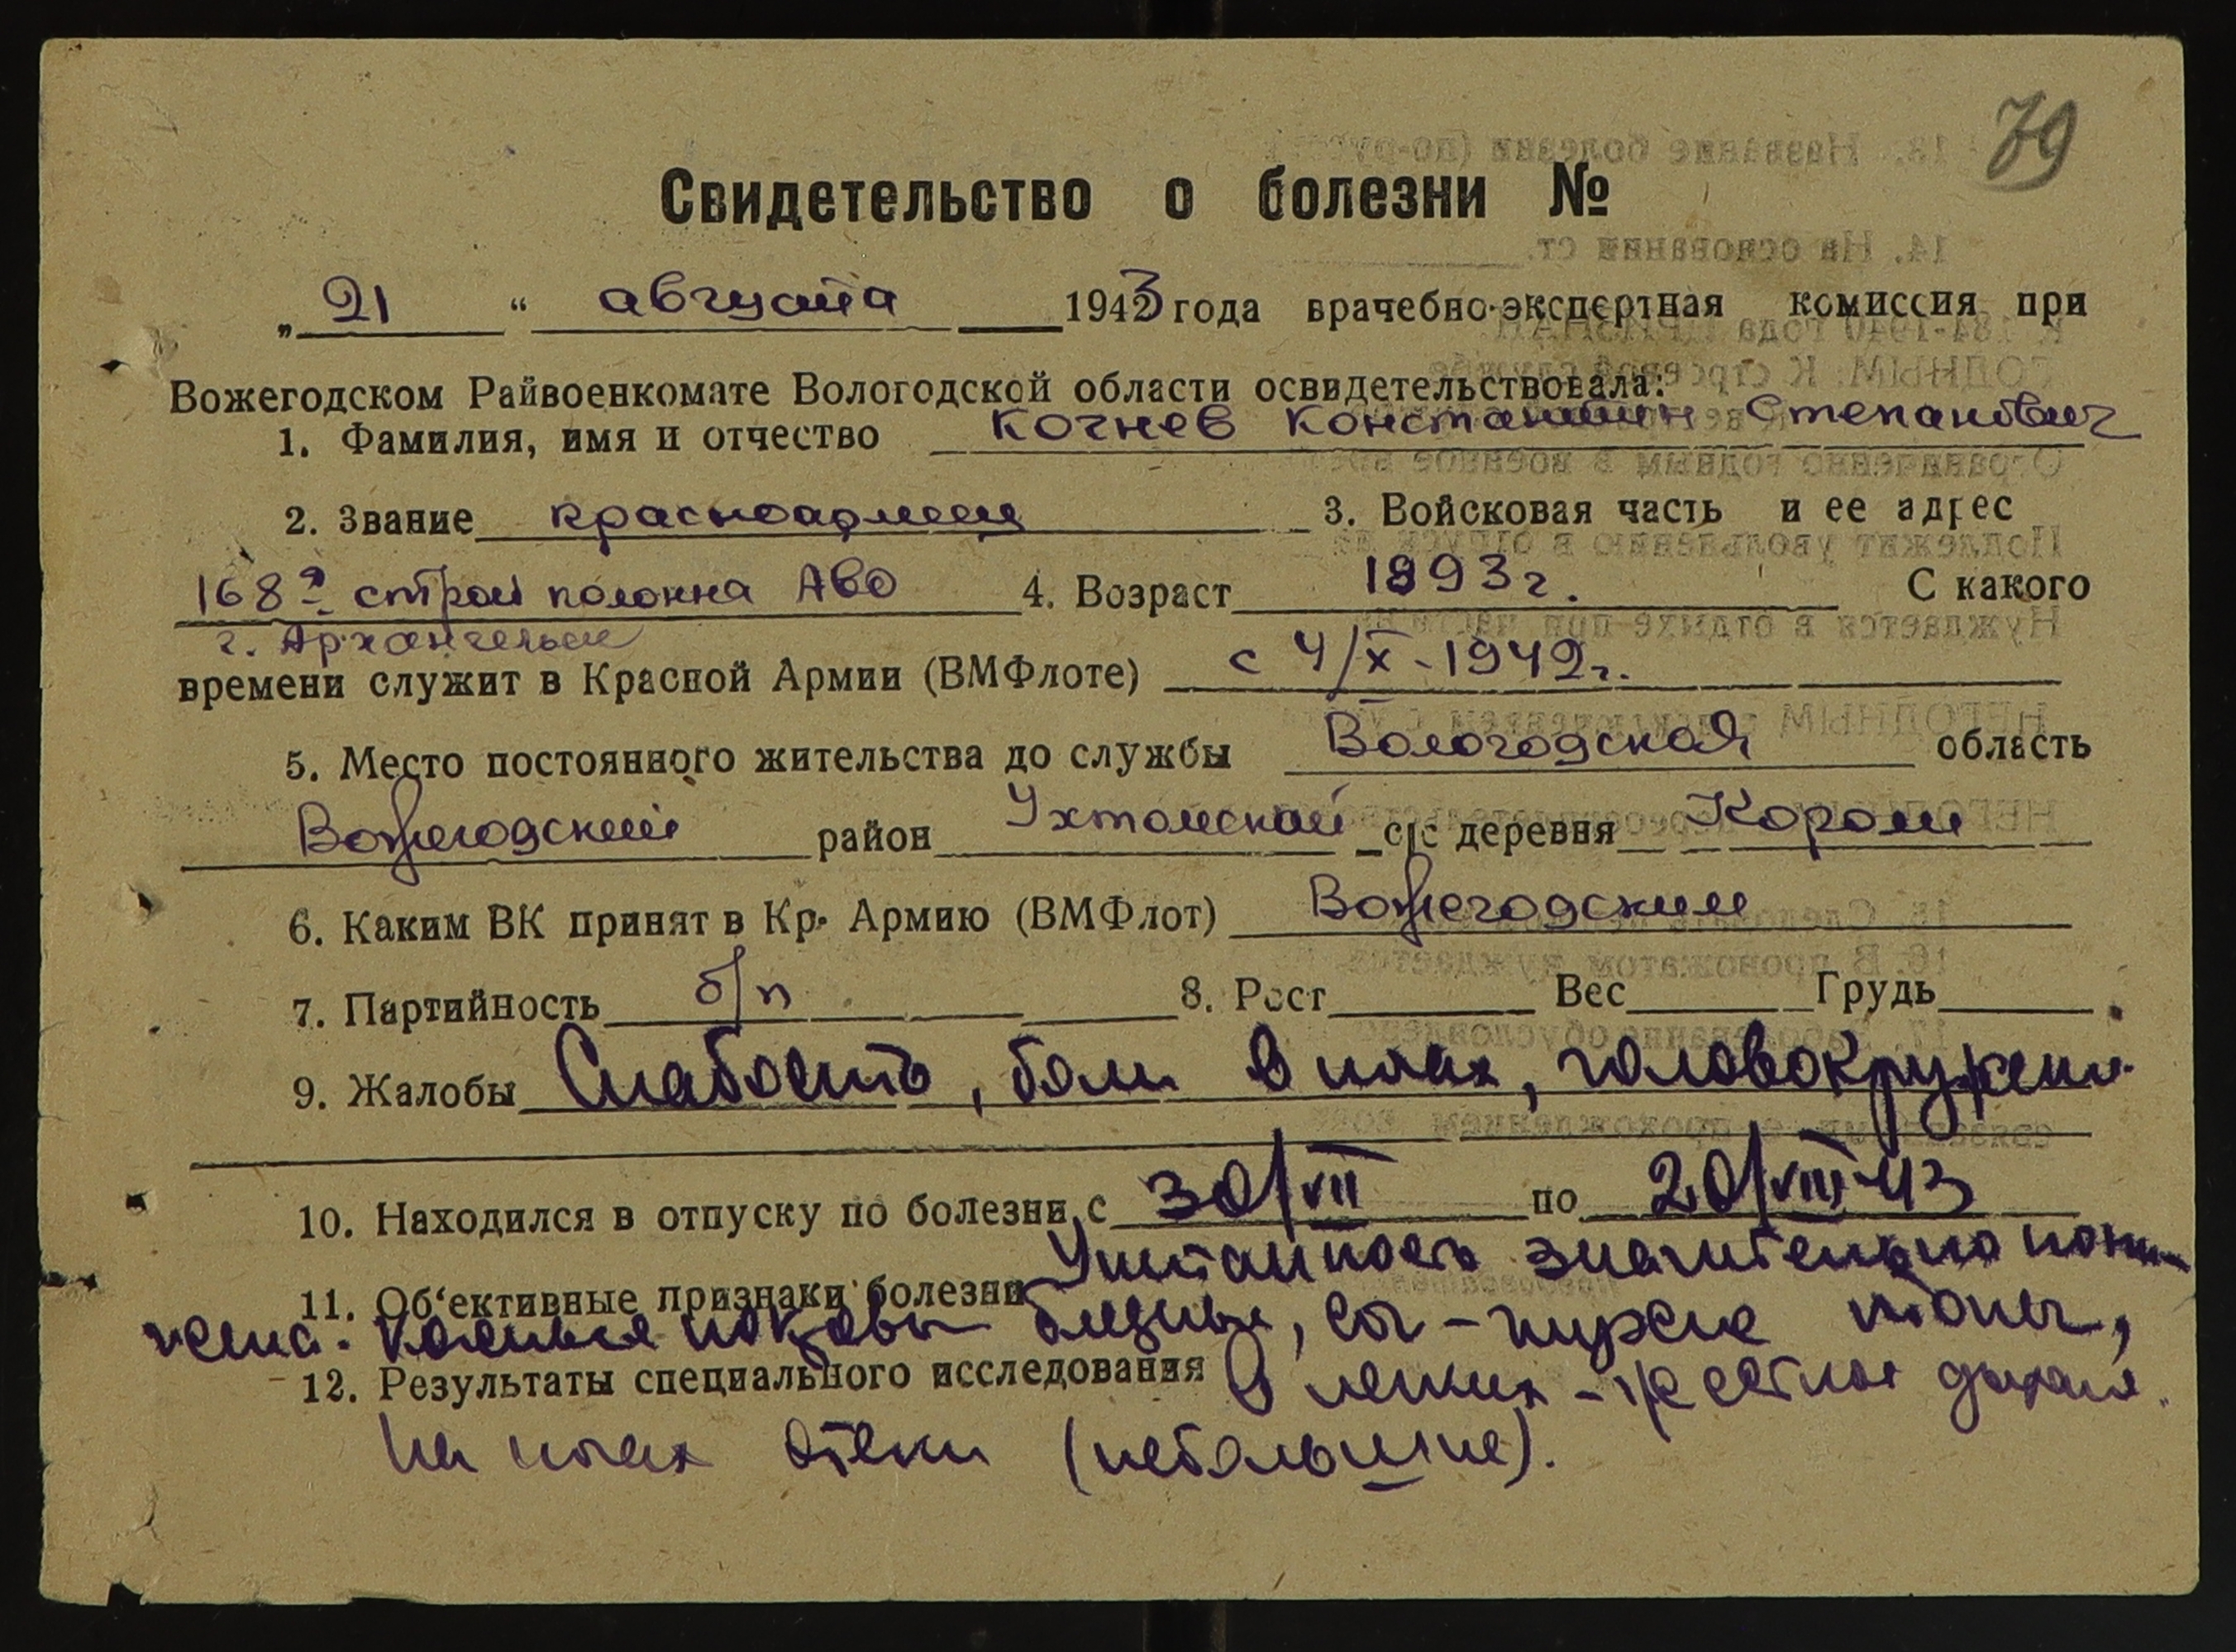 79
Свидетельство о болезни №
„ 21 “ августа 1943 года врачебно-экспертная комиссия при
Вожегодском Райвоенкомате Вологодской области освидетельствовала:
1. Фамилия, имя и отчество Кочнев Константин Степанович
2. Звание красноармеец 3. Войсковая часть и ее адрес
168я строй колонна АВО 4. Возраст 1893 г. С какого
г. Архангельск
времени служит в Красной Армии (ВМФлоте) с 4/X-1942 г.
5. Место постоянного жительства до службы Вологодская область
Вожегодский район Ухтомский с/с деревня
6. Каким ВК принят в Кр. Армию (ВМФлот) Вожегодским
7. Партийность б/п 8. Рост Вес Грудь
9. Жалобы Слабость, боли в ногах, головокружени
10. Находился в отпуску по болезни с 30/VII по 20/VIII-43
11. Об‘ективные признаки болезни Упитанность значительно пони-
жена. Кожные покровы бледные, тоны,
12. Результаты специального исследования В легких - жесткое дыхание.
На ногах отеки (небольшие).